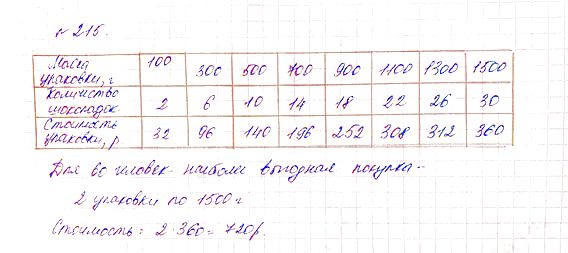 № 215.
Масса упаковки, г 100 300 500 700 900 1100 1300 1500
Количество шоколадок 2 6 10 14 18 22 26 30
Стоимость упаковки, р 32 96 140 196 252 308 312 360
Для 60 человек наиболее выгодная покупка -
2 упаковки по 1500 г
Стоимость: 2·360 = 720р.